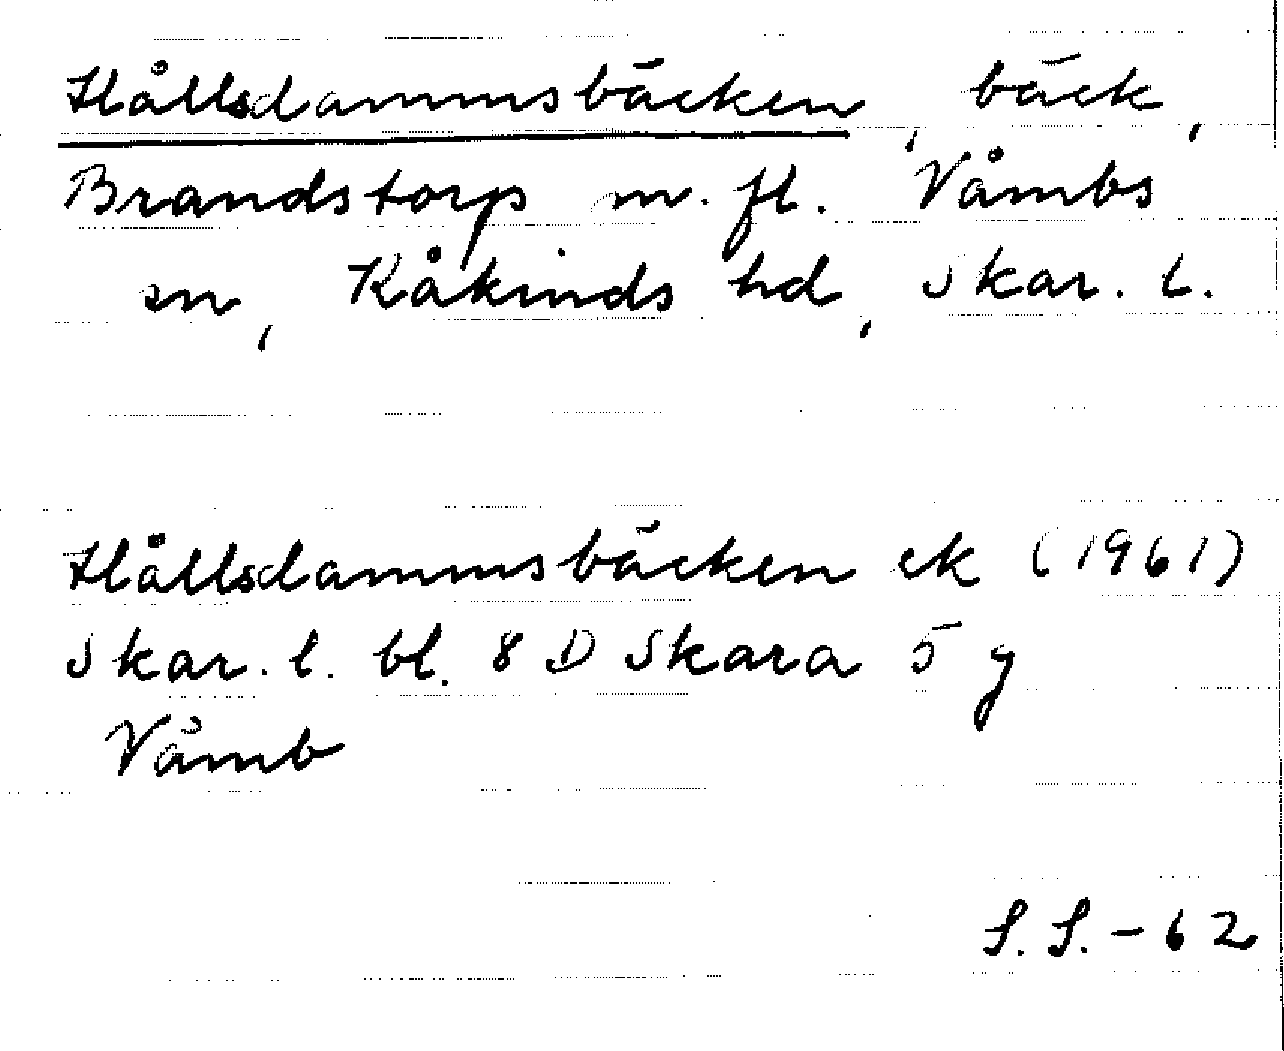 Hållsdammsbäcken, bäck,
Brandstorp m. fl. Våmbs
sn, Kåkinds hd, Skar. l.
Hållsdammsbäcken ek (1961)
Skar. l. bl. 8 D Skara 5 g
Våmb
S. S. - 62